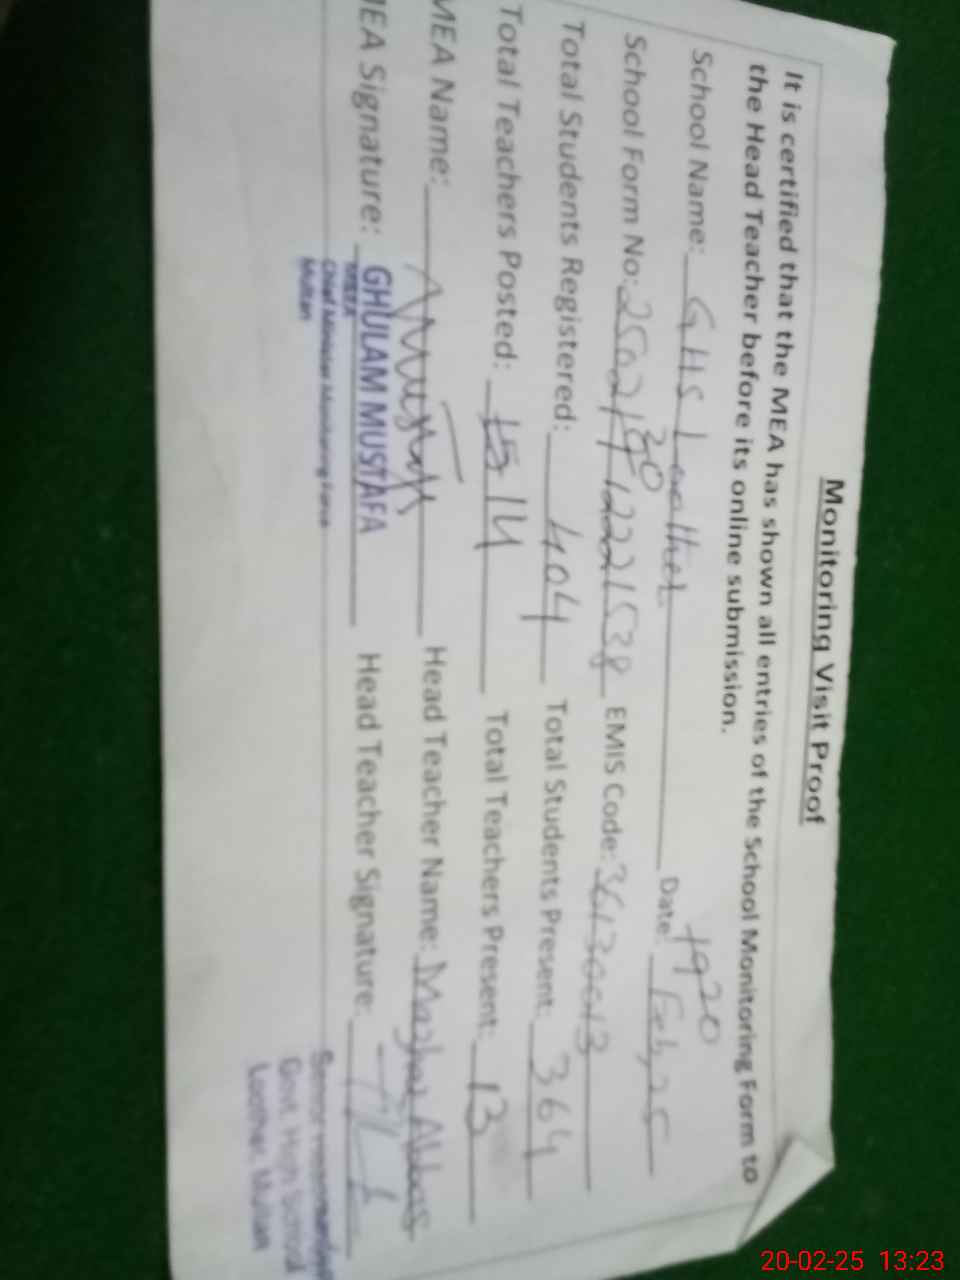 Monitoring Visit Proof
It is certified that the MEA has shown all entries of the School Monitoring Form to
the Head Teacher before its online submission.
School Name: GHS Loother Date: 19 20 Feb, 25
School Form No: EMIS Code: 36130013
Total Students Registered: 404 Total Students Present: 364
Total Teachers Posted: 15 14 Total Teachers Present: 13
MEA Name: Head Teacher Name: Mazhar Abbas
MEA Signature: Head Teacher Signature:
GHULAM MUSTAFA
MEA
Chief Minister Monitoring Force
Multan
Senior Headmaster
Govt. High School
Loother, Multan
20-02-25 13:23